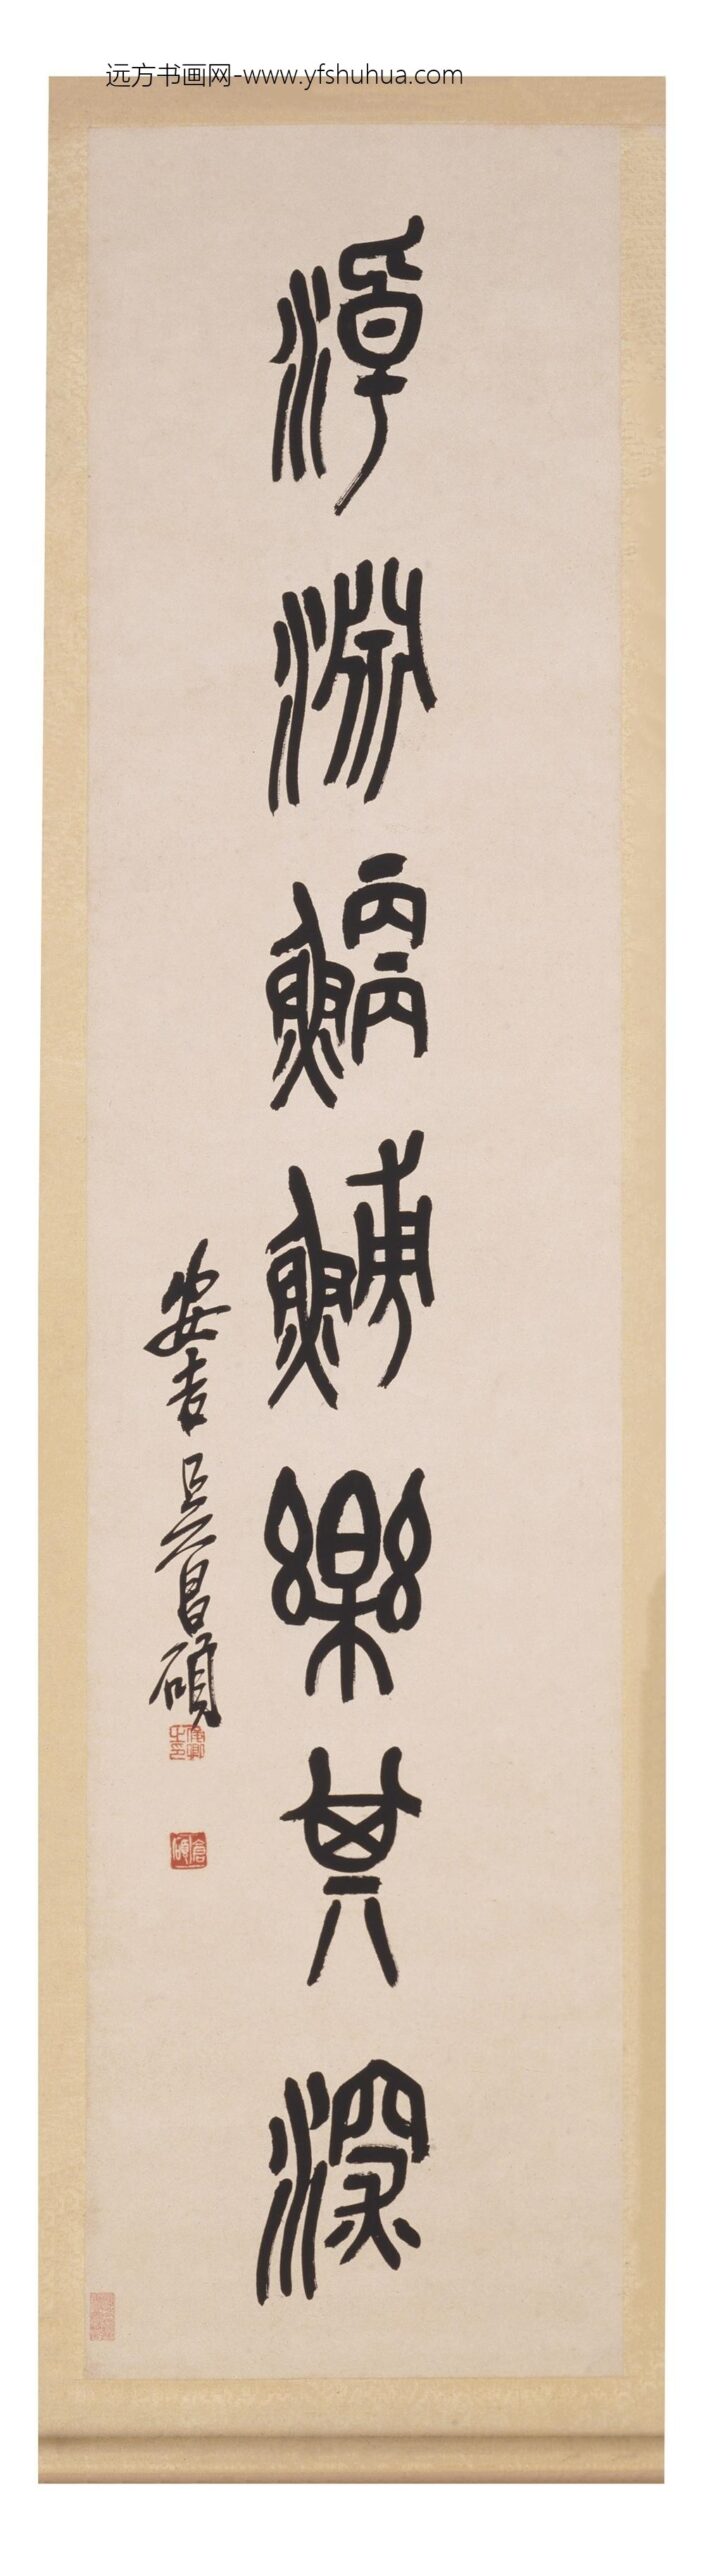 远方书画网-www.yfshuhua.com
淖淵鯿鯆樂其深
安吉吳昌碩
俊卿之印
倉碩